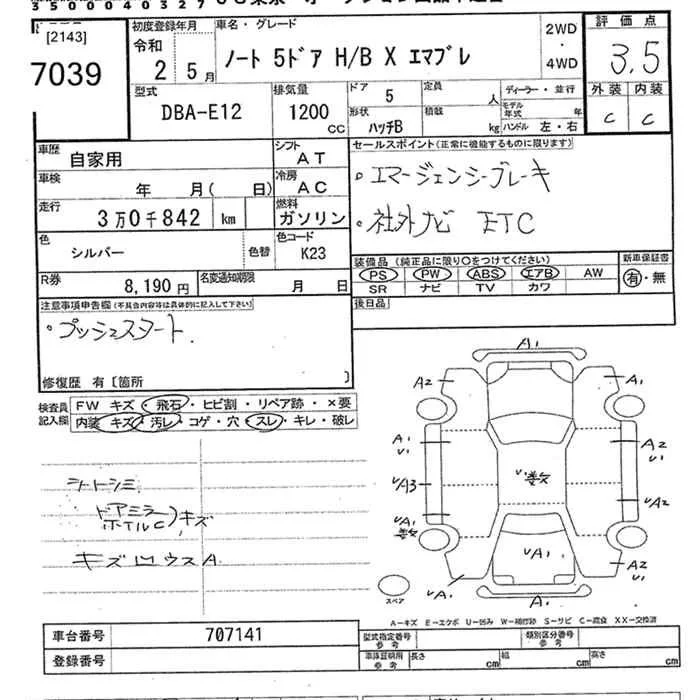 3500040327
[2143]
7039
初度登録年月
令和
2年5月
車名・グレード
ノート 5ドア H/B X エマブレ
2WD
・
4WD
評価点
3.5
外装 内装
C C
型式
DBA-E12
排気量
1200
CC
ドア
5
形状
ハッチB
定員
人
積載
kg
ディーラー・並行
モデル年式 年
ハンドル 左・右
車歴
自家用
シフト
AT
車検
年 月( 日)
冷房
AC
走行
3万0千842 km
燃料
ガソリン
色
シルバー
色替
色コード
K23
R券
8,190円
名変通知期限
月 日
セールスポイント(正常に機能するものに限ります)
・エマージェンシーブレーキ
・社外ナビ ETC
装備品(純正品に限り○をつけてください)
新車保証書
PS PW ABS エアB AW
有・無
SR ナビ TV カワ
後日品
注意事項申告欄(不具合内容等は具体的に記入して下さい)
・プッシュスタート
修復歴 有[箇所 ]
検査員記入欄
FW キズ・飛石・ヒビ割・リペア跡・×要
内装 キズ・汚レ・コゲ・穴・スレ・キレ・破レ
シートシミ
ドアミラー
ホイルC)キズ
キズ凹ウスA
A1
A2
A1
A1
U1
A2
U1
UA3
U数
UA2
UA1
数
UA1
A2
U1
UA1
A1
スペア
A-キズ E-エクボ U-凹み W-補修跡 S-サビ C-腐食 XX-交換済
車台番号
707141
登録番号
型式指定番号
参考
類別区分番号
参考
車庫証明用
参考
長さ cm
幅 cm
高さ cm